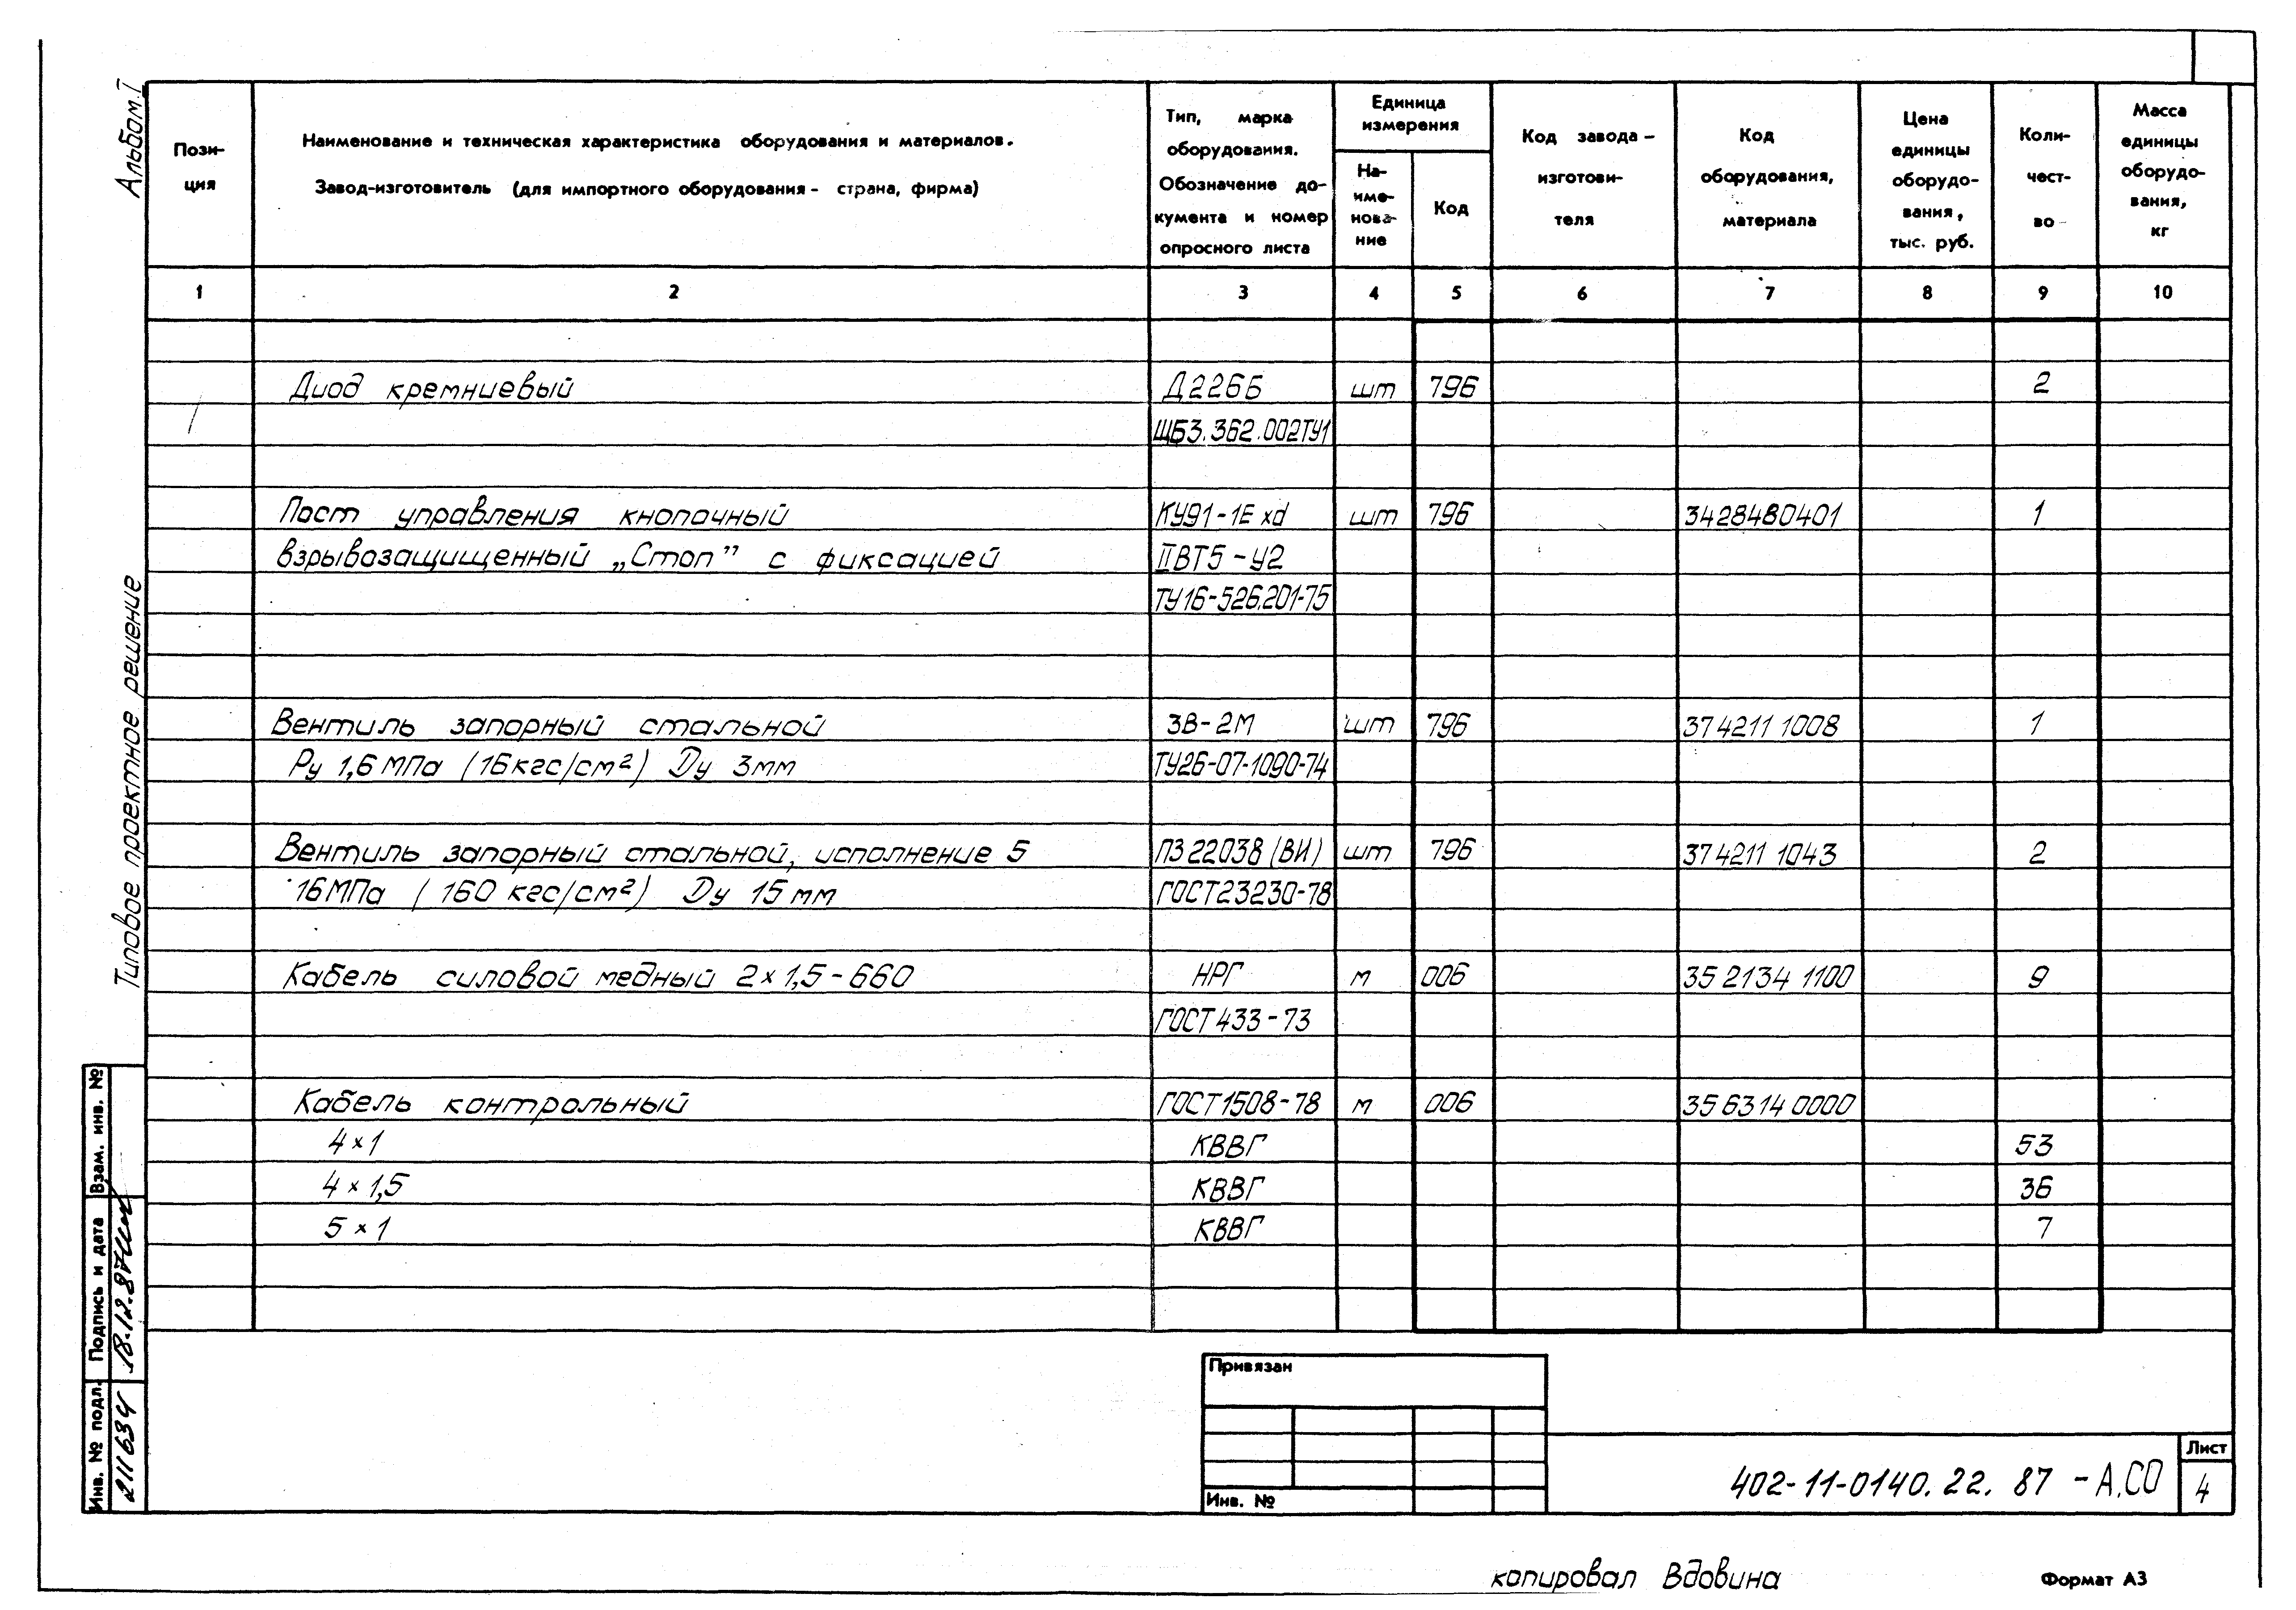 Альбом I
Типовое проектное решение
Пози-
ция
Наименование и техническая характеристика оборудования и материалов.
Завод-изготовитель (для импортного оборудования - страна, фирма)
Тип, марка
оборудования.
Обозначение до-
кумента и номер
опросного листа
Единица
измерения
На-
име-
нова-
ние
Код
Код завода -
изготови-
теля
Код
оборудования,
материала
Цена
единицы
оборудо-
вания,
тыс. руб.
Коли-
чест-
во
Масса
единицы
оборудо-
вания,
кг
1 2 3 4 5 6 7 8 9 10
Диод кремниевый Д226Б шт 796 2
ЩБ3.362.002ТУ1
Пост управления кнопочный КУ91-1Exd шт 796 3428480401 1
взрывозащищенный „Стоп” с фиксацией IIВТ5-У2
ТУ16-526.201-75
Вентиль запорный стальной ЗВ-2М шт 796 37 4211 1008 1
Ру 1,6 МПа (16 кгс/см²) Dу 3мм ТУ26-07-1090-74
Вентиль запорный стальной, исполнение 5 ПЗ 22038 (ВИ) шт 796 37 4211 1043 2
16 МПа (160 кгс/см²) Dу 15 мм ГОСТ23230-78
Кабель силовой медный 2×1,5-660 НРГ м 006 35 2134 1100 9
ГОСТ 433-73
Кабель контрольный ГОСТ1508-78 м 006 35 6314 0000
4×1 КВВГ 53
4×1,5 КВВГ 36
5×1 КВВГ 7
Взам. инв. №
Подпись и дата 18.12.87
Инв. № подл. 2111634
Привязан
Инв. №
402-11-0140.22.87 -А.СО
Лист
4
копировал Вдовина
Формат А3